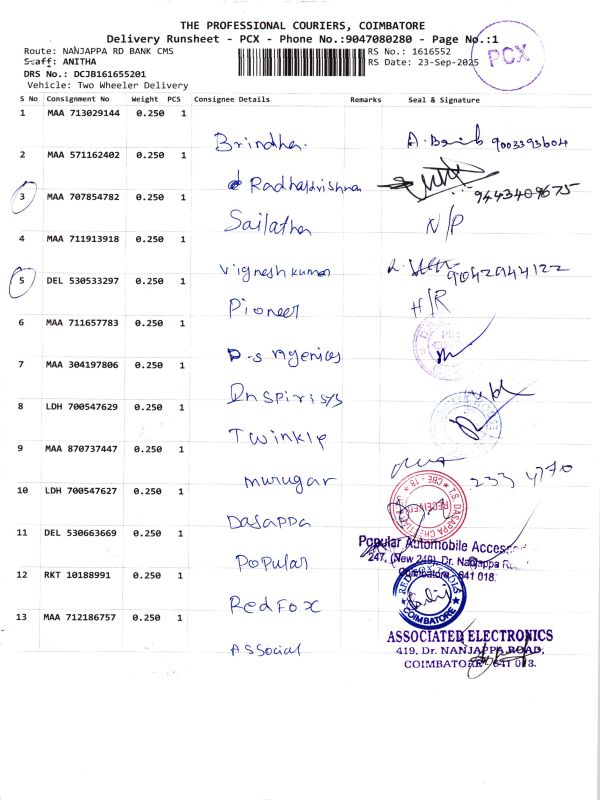 THE PROFESSIONAL COURIERS, COIMBATORE
Delivery Runsheet - PCX - Phone No.:9047080280 - Page No.:1
Route: NANJAPPA RD BANK CMS
RS No.: 1616552
Staff: ANITHA
RS Date: 23-Sep-2025
PCX
DRS No.: DCJB161655201
Vehicle: Two Wheeler Delivery
S No Consignment No Weight PCS Consignee Details Remarks Seal & Signature
1 MAA 713029144 0.250 1
Brindha. 9003393604
2 MAA 571162402 0.250 1
Radhakrishnan
3 MAA 707854782 0.250 1
9443409675
Sailatha N/P
4 MAA 711913918 0.250 1
Vignesh kumar 9042944122
5 DEL 530533297 0.250 1
Pioneer H/R
6 MAA 711657783 0.250 1
D.S Agenices
7 MAA 304197806 0.250 1
Inspirisys
8 LDH 700547629 0.250 1
Twinkle
9 MAA 870737447 0.250 1
murugar 233 4770
10 LDH 700547627 0.250 1
T.S. DASAPPA CHETTIAR
CBE - 18
RECEIVED
Dasappa
11 DEL 530663669 0.250 1
Popular Automobile Access
247, (New 249), Dr. Nanjappa
Coimbatore - 641 018.
Popular
12 RKT 10188991 0.250 1
RedFox
COIMBATORE
13 MAA 712186757 0.250 1
ASSOCIATED ELECTRONICS
419, Dr. NANJAPPA ROAD,
COIMBATORE - 641 018.
ASSocial